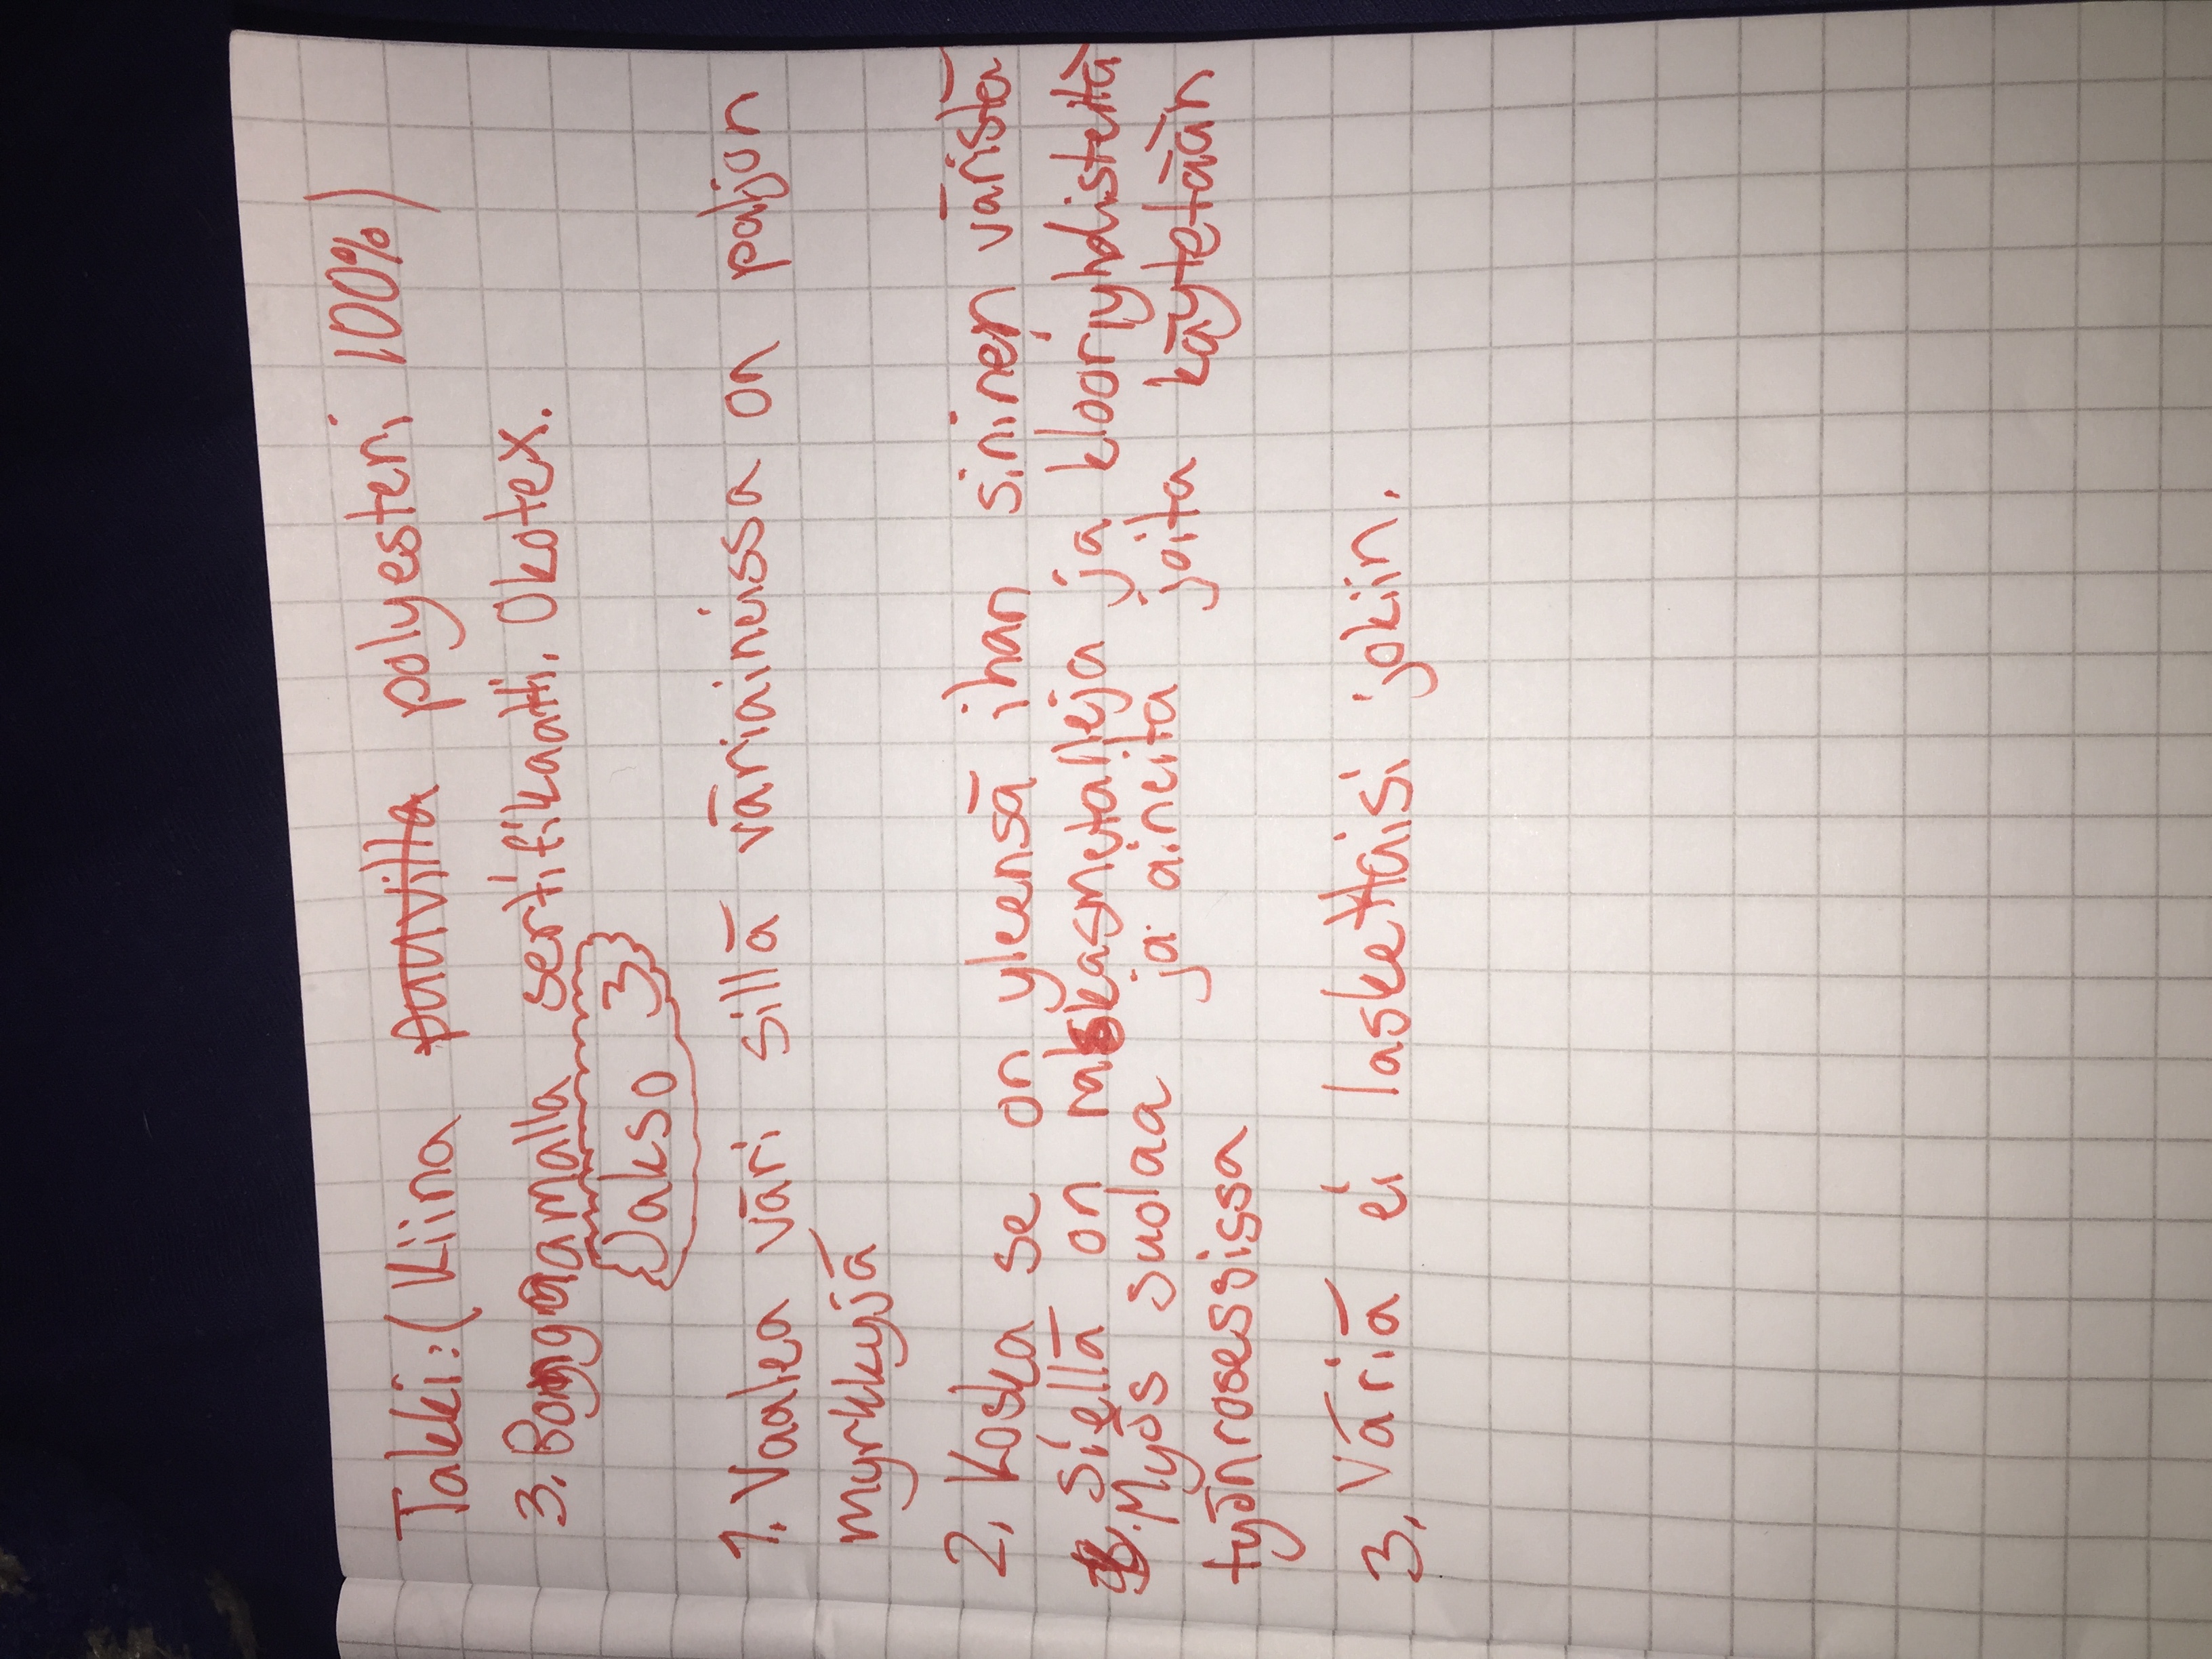 Takki: (Kiina puuvilla polyesteri 100%)
3. Bongaamalla sertifikaatti. Okotex.
Jakso 3
1. Vaalea väri sillä väriaineissa on paljon
myrkkyjä
2. Koska se on yleensä ihan sininen väristä
siellä on raskasmetalleja ja klooriyhdisteitä
Myös suolaa ja aineita joita käytetään
työnrosessissa
3. Väriä ei laskettaisi jokin.